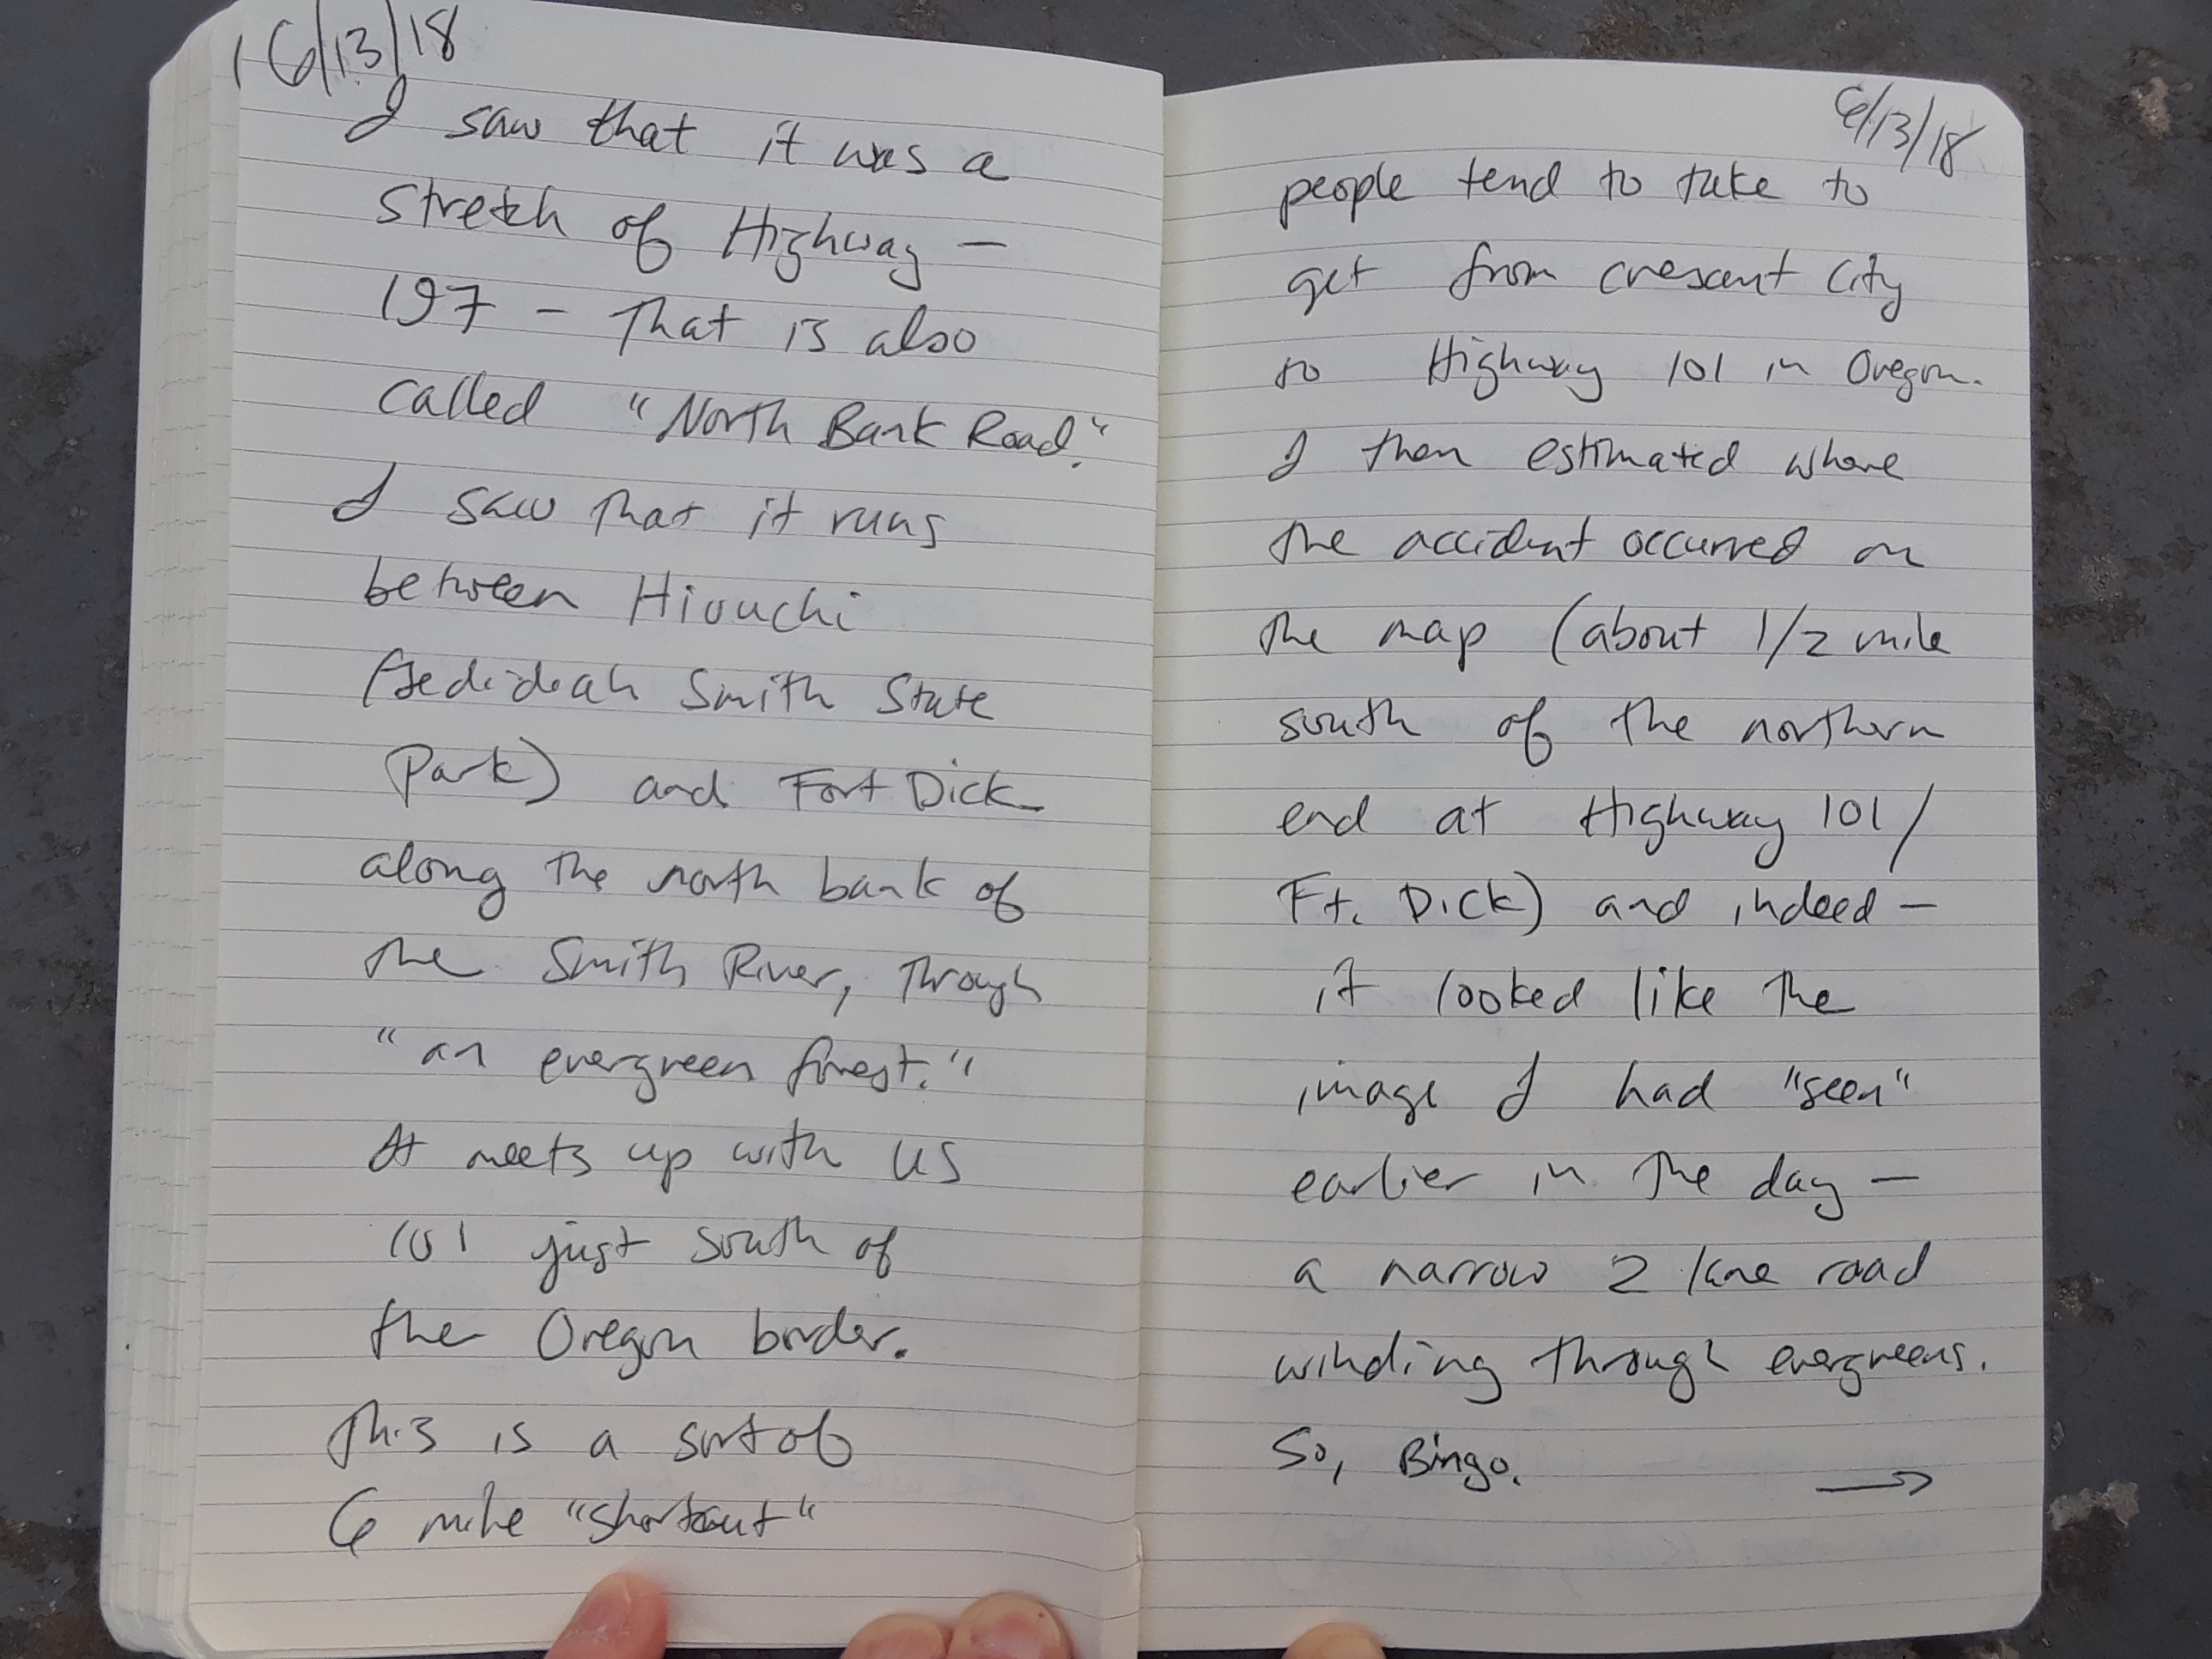 6/13/18
I saw that it was a
stretch of Highway —
197 – that is also
called "North Bank Road."
I saw that it runs
between Hiouchi
(Jedideah Smith State
Park) and Fort Dick
along the north bank of
the Smith River, through
"an evergreen forest."
It meets up with US
101 just south of
the Oregon border.
This is a sort of
6 mile "shortcut"
6/13/18
people tend to take to
get from crescent City
to Highway 101 in Oregon.
I then estimated where
the accident occurred on
the map (about 1/2 mile
south of the northern
end at Highway 101/
Ft. Dick) and indeed —
it looked like the
image I had "seen"
earlier in the day —
a narrow 2 lane road
winding through evergreens.
So, Bingo. →